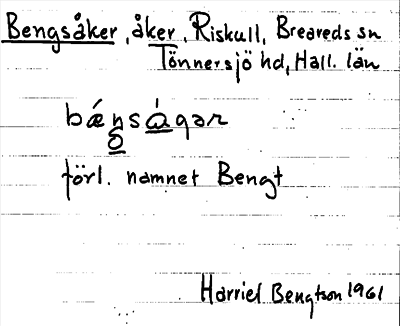 Bengsåker, åker, Riskull, Breareds sn
Tönnersjö hd, Hall. län
bǽnsågər
förl. namnet Bengt
Harriel Bengtson 1961